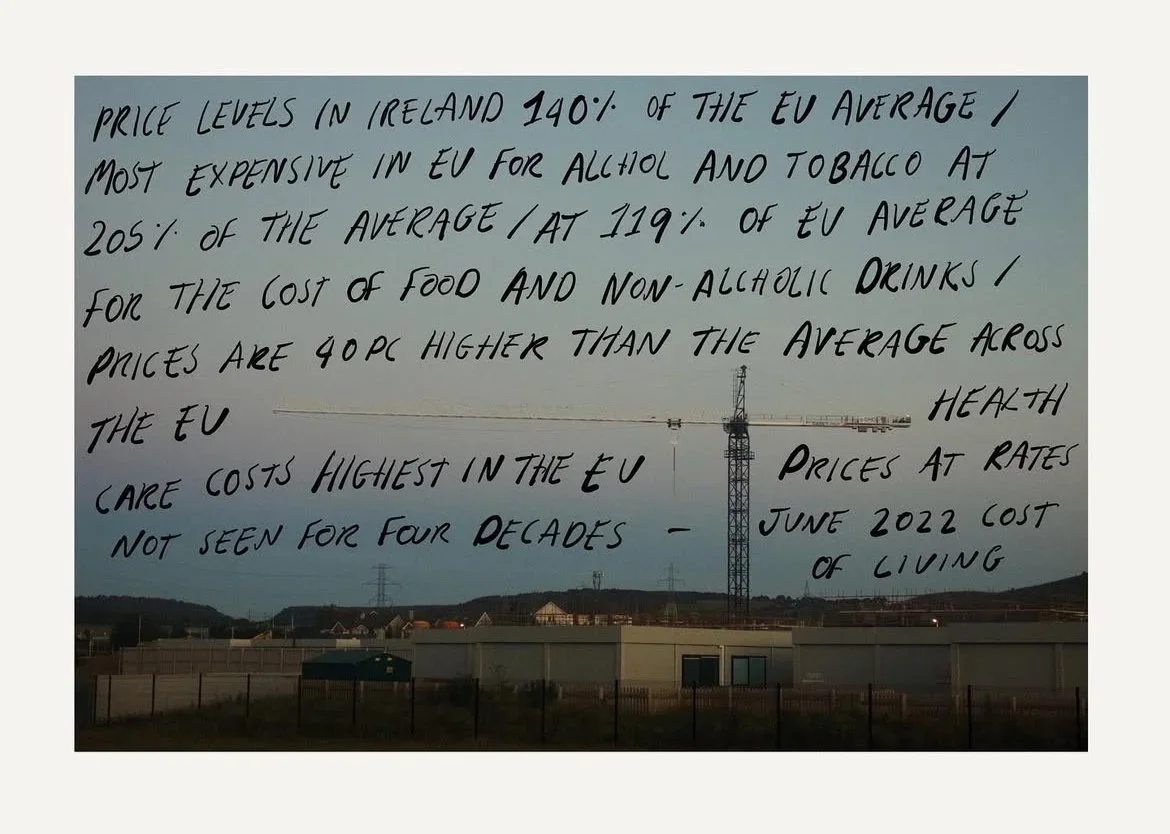 PRICE LEVELS IN IRELAND 140% OF THE EU AVERAGE /
MOST EXPENSIVE IN EU FOR ALCHOL AND TOBACCO AT
205% OF THE AVERAGE / AT 119% OF EU AVERAGE
FOR THE COST OF FOOD AND NON-ALCHOLIC DRINKS /
PRICES ARE 40PC HIGHER THAN THE AVERAGE ACROSS
THE EU HEALTH
CARE COSTS HIGHEST IN THE EU PRICES AT RATES
NOT SEEN FOR FOUR DECADES - JUNE 2022 COST
OF LIVING